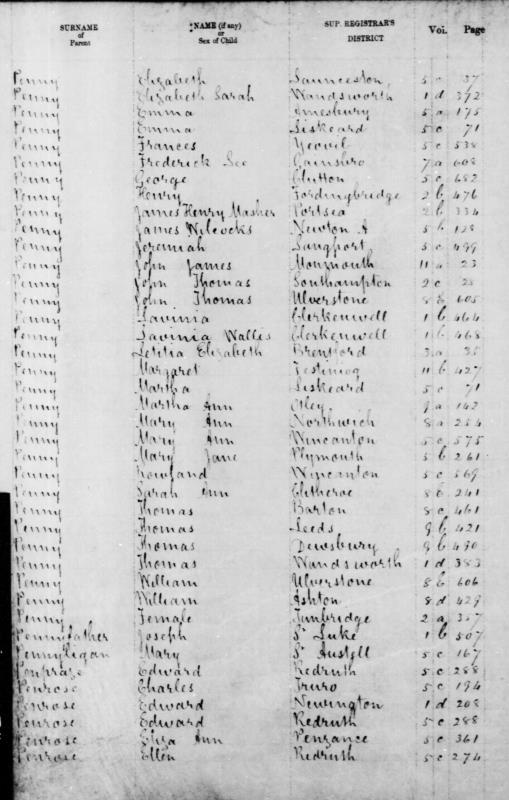 SURNAME of Parent *NAME (if any) or Sex of Child SUP. REGISTRAR'S DISTRICT Vol. Page
Penny Elizabeth Launceston 5 c 37
Penny Elizabeth Sarah Wandsworth 1 d 392
Penny Emma Amesbury 5 a 175
Penny Emma Liskeard 5 c 71
Penny Frances Yeovil 5 c 538
Penny Frederick Lee Gainsbro 7 a 608
Penny George Clutton 5 c 682
Penny Henry Fordingbridge 2 b 476
Penny James Henry Masher Portsea 2 b 334
Penny James Wilcocks Newton A 5 b 128
Penny Jeremiah Langport 5 c 499
Penny John James Monmouth 11 a 23
Penny John Thomas Southampton 2 c 25
Penny John Thomas Ulverstone 8 b 605
Penny Lavinia Clerkenwell 1 b 464
Penny Lavinia Wallis Clerkenwell 1 b 468
Penny Letitia Elizabeth Brentford 3 a 35
Penny Margaret Festiniog 11 b 427
Penny Martha Liskeard 5 c 71
Penny Martha Ann Otley 9 a 142
Penny Mary Ann Northwich 8 a 254
Penny Mary Ann Wincanton 5 c 575
Penny Mary Jane Plymouth 5 b 261
Penny Rowland Wincanton 5 c 569
Penny Sarah Ann Clitheroe 8 b 241
Penny Thomas Barton 8 c 461
Penny Thomas Leeds 9 b 421
Penny Thomas Dewsbury 9 b 490
Penny Thomas Wandsworth 1 d 383
Penny William Ulverstone 8 b 606
Penny William Ashton 8 d 429
Penny Female Tunbridge 2 a 357
Pennyfather Joseph St Luke 1 b 507
Pennyligan Mary St Austell 5 c 167
Penpraze Edward Redruth 5 c 288
Penrose Charles Truro 5 c 194
Penrose Edward Newington 1 d 208
Penrose Edward Redruth 5 c 288
Penrose Eliza Ann Penzance 5 c 361
Penrose Ellen Redruth 5 c 274